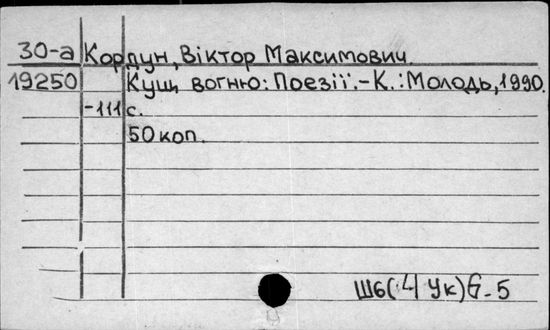 30-а Кордун, Віктор Максимович.
19250 Кущ вогню: Поезії.-К.:Молодь,1990.
-111 с.
50 коп.
Ш6(4Ук)6-5